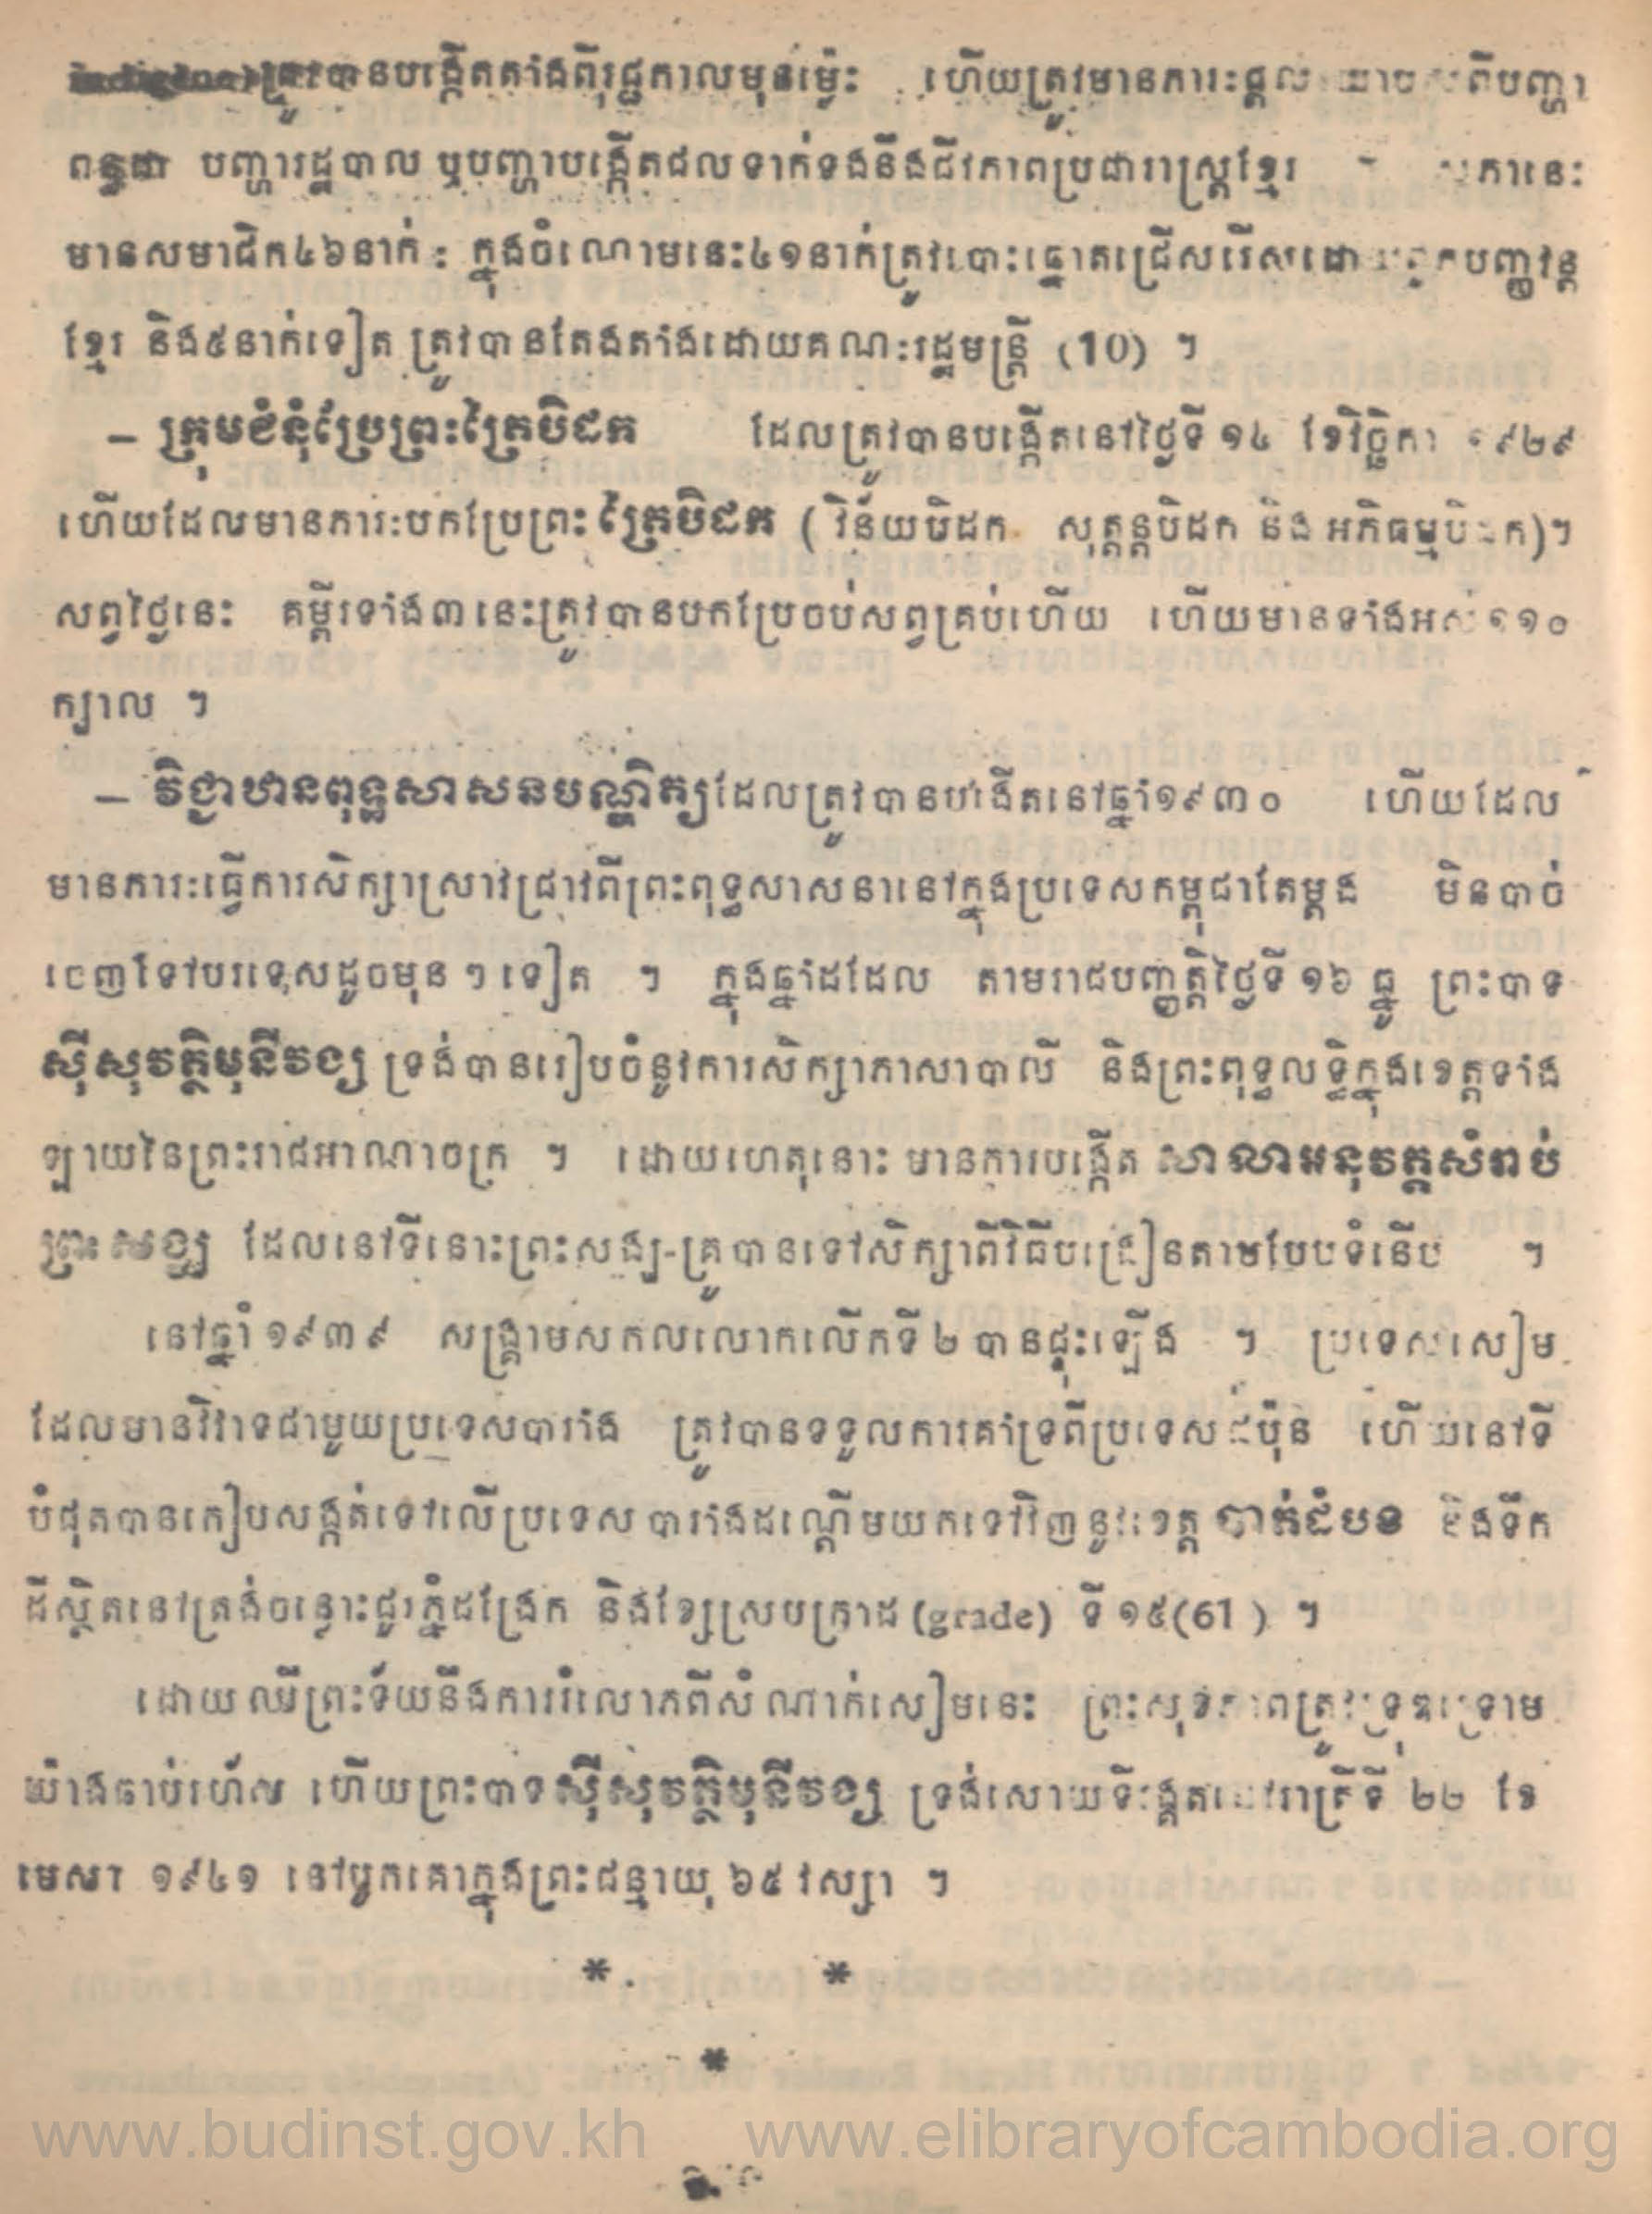 ត្រូវបានបង្កើតតាំងពីរជ្ជកាលមុនម្ល៉េះ ហើយត្រូវមានភារៈផ្តល់ ពីបញ្ហា
ពន្ធដា បញ្ហារដ្ឋបាល ឬបញ្ហាបង្កើតផលទាក់ទងនឹងជីវភាពប្រជារាស្ត្រខ្មែរ សភានេះ
មានសមាជិក៤៦នាក់ : ក្នុងចំណោមនេះ៤១នាក់ត្រូវបោះឆ្នោតជ្រើសរើសដោយពួកបញ្ញវន្ត
ខ្មែរ និង៥នាក់ទៀត ត្រូវបានតែងតាំងដោយគណៈរដ្ឋមន្ត្រី (10) ។
– ក្រុមជំនុំប្រែព្រះត្រៃបិដក ដែលត្រូវបានបង្កើតនៅថ្ងៃទី ១៤ ខែវិច្ឆិកា ១៩២៩
ហើយដែលមានភារៈបកប្រែព្រះ ត្រៃបិដក ( វិន័យបិដក សុត្តន្តបិដក និង អភិធម្មបិដក)។
សព្វថ្ងៃនេះ គម្ពីរទាំង៣នេះត្រូវបានបកប្រែចប់សព្វគ្រប់ហើយ ហើយមានទាំងអស់ ១១០
ក្បាល ។
– វិជ្ជាឋានពុទ្ធសាសនបណ្ឌិត្យដែលត្រូវបានបង់ើតនៅឆ្នាំ១៩៣០ ហើយដែល
មានភារៈធ្វើការសិក្សាស្រាវជ្រាវពីព្រះពុទ្ធសាសនានៅក្នុងប្រទេសកម្ពុជាតែម្តង មិនបាច់
ចេញទៅបរទេសដូចមុន ៗ ទៀត ។ ក្នុងឆ្នាំដដែល តាមរាជបញ្ញត្តិថ្ងៃទី ១៦ ធ្នូ ព្រះបាទ
ស៊ីសុវត្ថិមុនីវង្ស ទ្រង់បានរៀបចំនូវការសិក្សាភាសាបាលី និងព្រះពុទ្ធលទ្ធិក្នុងខេត្តទាំង
ឡាយនៃព្រះរាជអាណាចក្រ ។ ដោយហេតុនោះ មានការបង្កើត សាលាអនុវត្តសំរាប់
ព្រះសង្ឃ ដែលនៅទីនោះព្រះសង្ឃ-គ្រូបានទៅសិក្សាពីវិធីបង្រៀនតាមបែបទំនើប ។
នៅឆ្នាំ ១៩៣៩ សង្គ្រាមសកលលោកលើកទី ២ បានផ្ទុះឡើង ។ ប្រទេសសៀម
ដែលមានវិវាទជាមួយប្រទេសបារាំង ត្រូវបានទទួលការគាំទ្រពីប្រទេសជប៉ុន ហើយនៅទី
បំផុតបានគៀបសង្កត់ទៅលើប្រទេសបារាំងដណ្តើមយកទៅវិញនូវខេត្ត បាត់ដំបង និងទឹក
ដីស្ថិតនៅត្រង់ចន្លោះជួរភ្នំដងរែក និងខ្សែស្របក្រាដ (grade) ទី ១៥(61 ) ។
ដោយឈឺព្រះទ័យនឹងការរំលោភពីសំណាក់សៀមនេះ ព្រះសុខភាពត្រូវទ្រុឌទ្រោម
យ៉ាងឆាប់រហ័ស ហើយព្រះបាទស៊ីសុវត្ថិមុនីវង្ស ទ្រង់សោយទីវង្គតនៅរាត្រីទី ២២ ខែ
មេសា ១៩៤១ នៅបូកគោក្នុងព្រះជន្មាយុ ៦៥ វស្សា ។
* *
*
www.budinst.gov.kh www.elibraryofcambodia.org